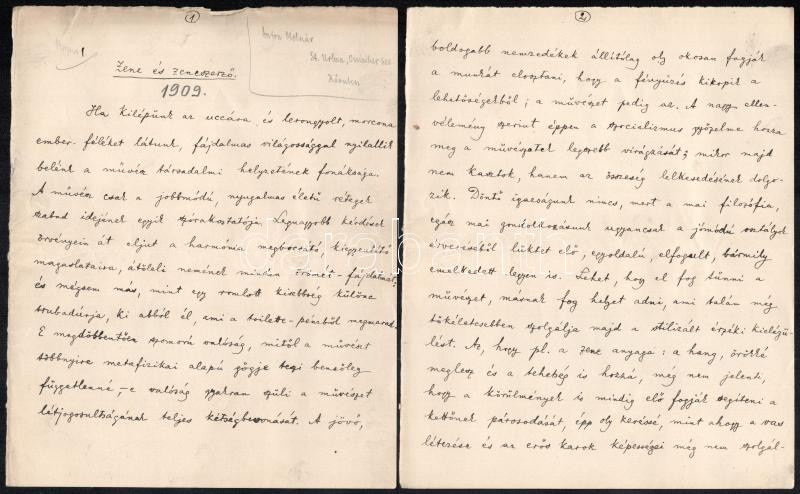 1
Anton Molnár
Zene és zeneszerző.
1909.
Ha kilépünk az uccára és lerongyolt, morcona
ember-féléket látunk, fájdalmas világossággal nyilallik
belénk a művész társadalmi helyzetének fonáksága.
A művész csak a jobbmódú, nyugalmas életű rétegek
szabad idejének egyik szórakoztatója. Legnagyobb kérdések
örvényein át eljut a harmónia megbocsátó, kiegyenlítő
magaslataira, átöleli nemének minden örömét-fájdalmát,
és mégsem más, mint egy romlott kisebbség különc
trubadúrja, ki abból él, ami a toilette-pénzből megmarad.
E megdöbbentően szomorú valóság, mitől a művészt
többnyire metafizikai alapú gőgje teszi bensőleg
függetlenné, – e valóság gyakran szüli a művészet
létjogosultságának teljes kétségbevonását. A jövő,
2
boldogabb nemzedékek állítólag oly okosan fogják
a munkát elosztani, hogy a fényűzés kikopik a
lehetőségekből; a művészet pedig az. A nagy ellen-
vélemény szerint éppen a szocializmus győzelme hozza
meg a művészetek legszebb virágzását; mikor majd
nem kasztok, hanem az összeség lelkesedésének dolgo-
zik. Döntő igazságunk nincs, mert a mai filozófia,
egész mai gondolkozásunk ugyancsak a jómódú osztályok
érveréséből lüktet elő, egyoldalú, elfogult, bármily
emelkedett legyen is. Lehet, hogy el fog tűnni a
művészet, másnak fog helyet adni, ami talán még
tökéletesebben szolgálja majd a stilizált érzéki kielégü-
lést. Az, hogy pl. a zene anyaga: a hang, örökké
meglesz és a tehetség is hozzá, még nem jelenti,
hogy a körülmények is mindig elő fogják segíteni a
kettőnek párosodását, épp oly kevéssé, mint ahogy a vas
létezése és az erős karok képességei még nem szolgál-
darabanth